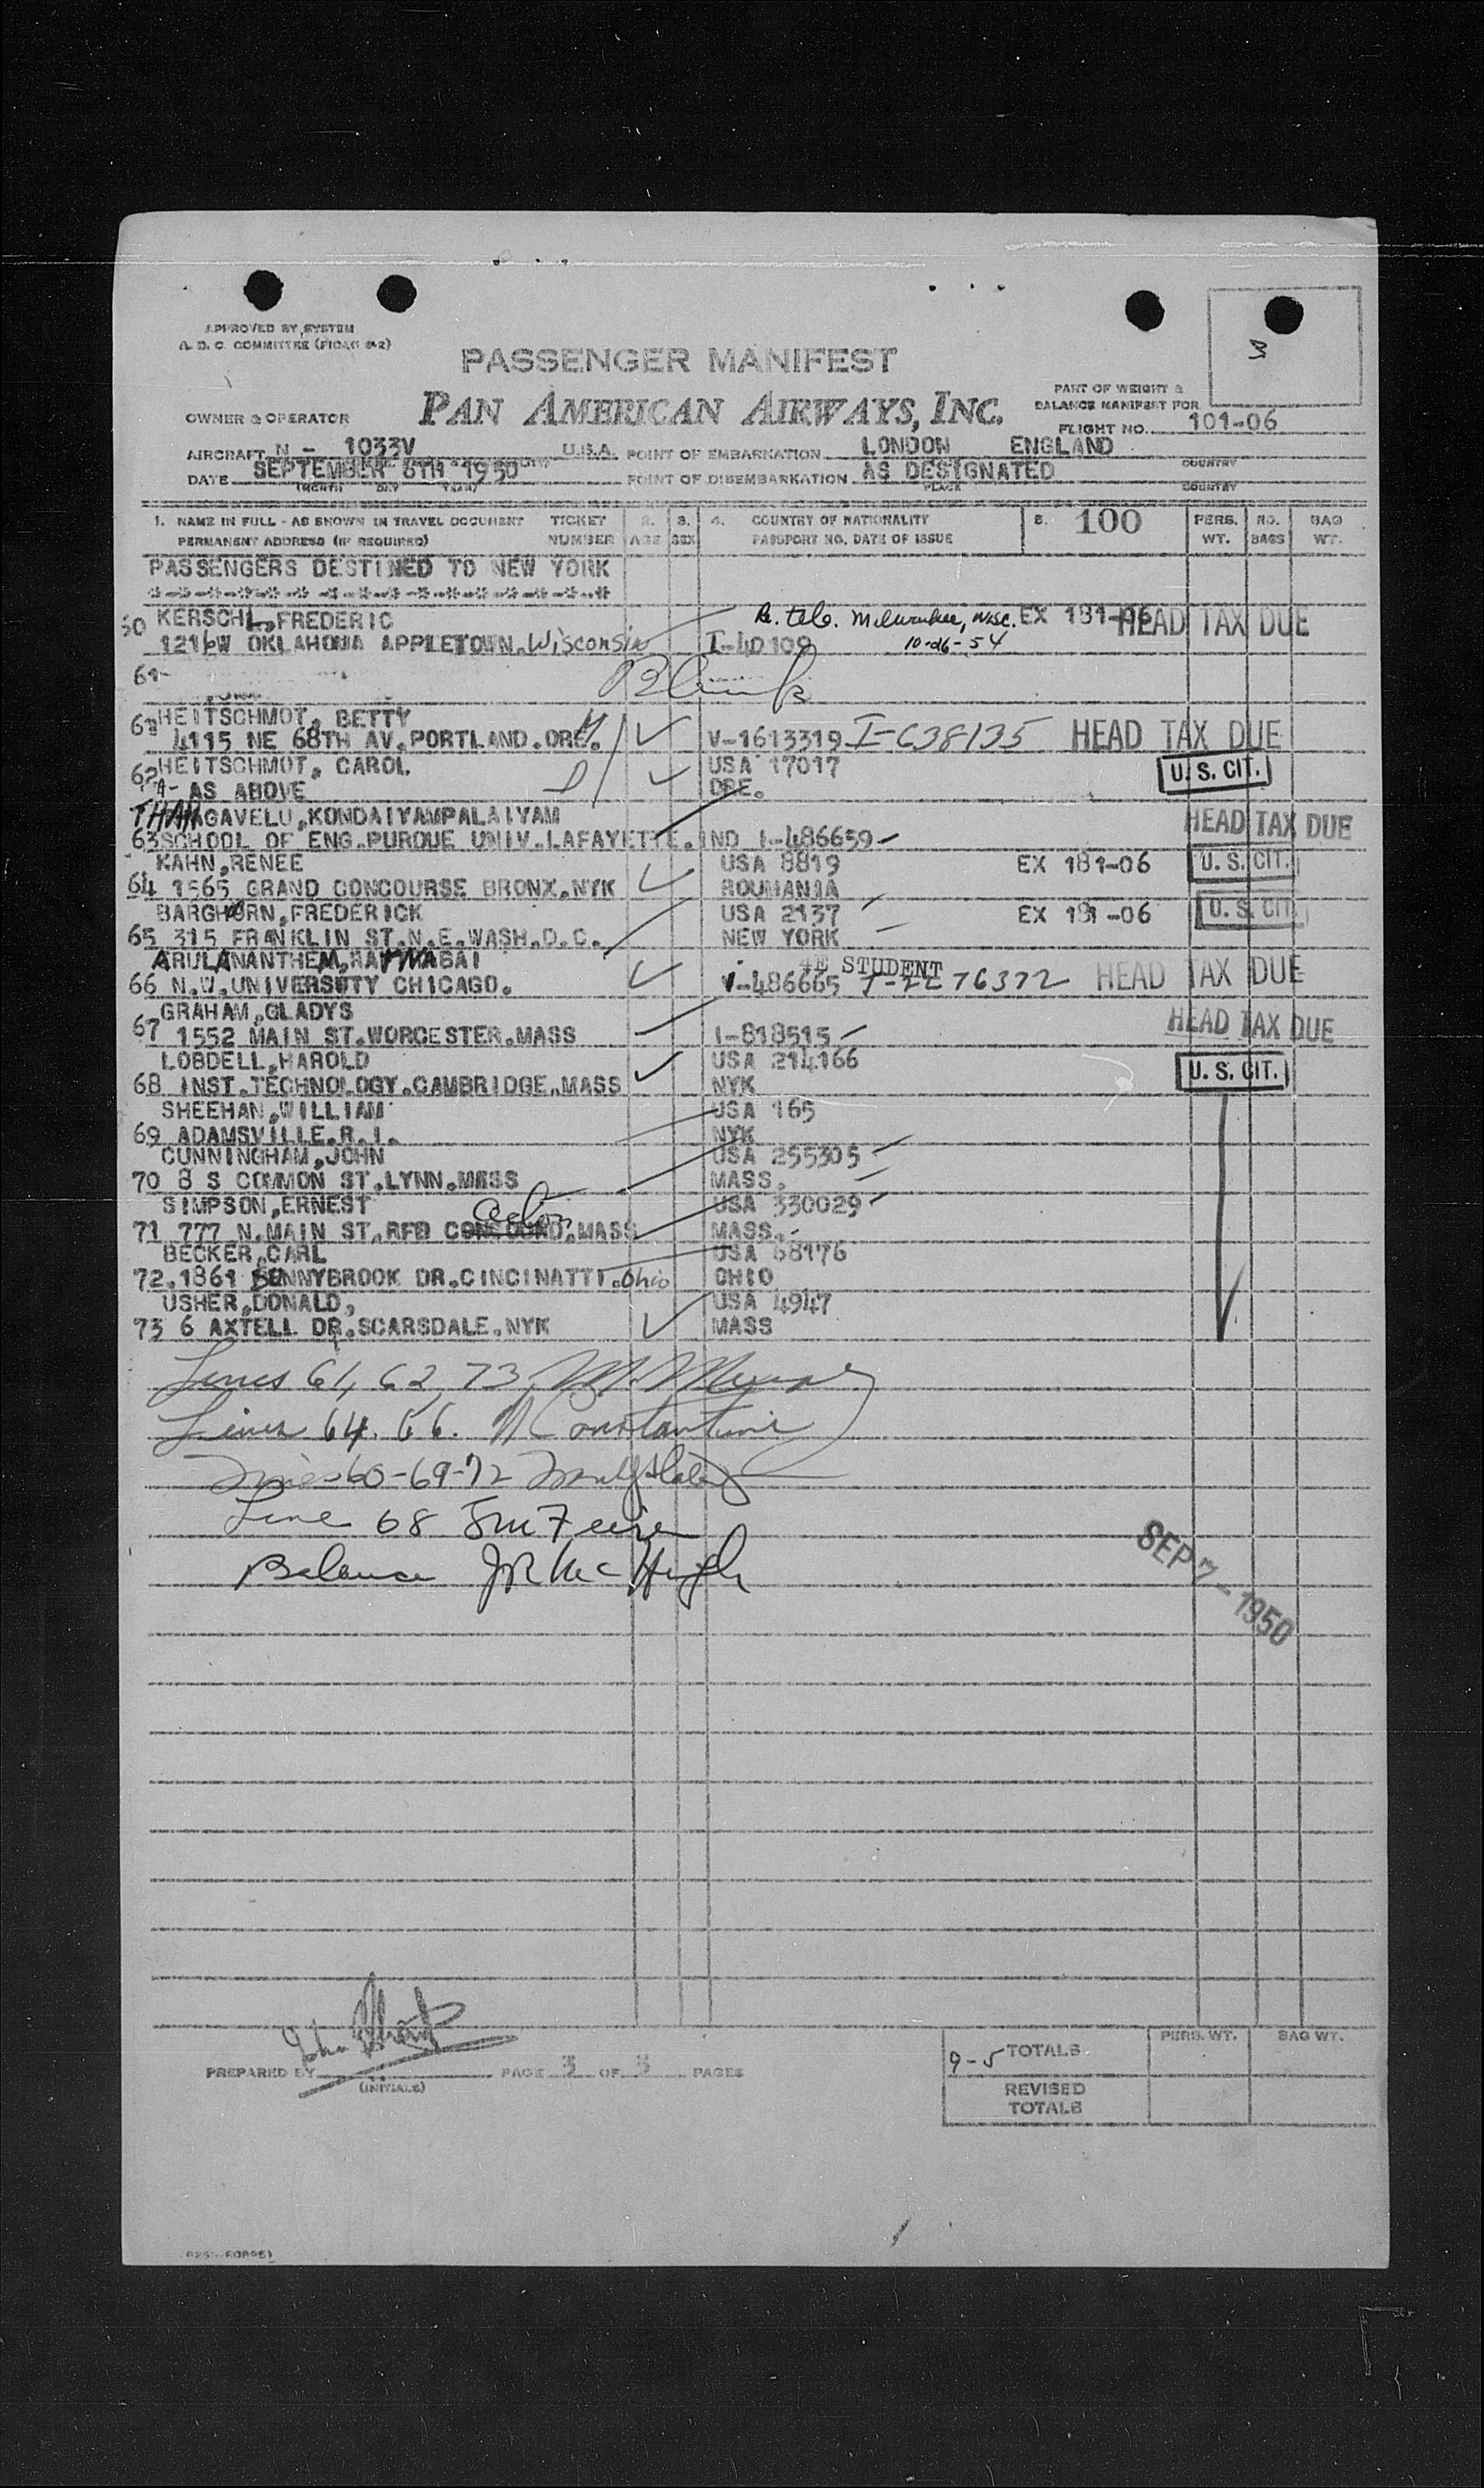 APPROVED BY SYSTEM
A. D. C. COMMITTEE
3
PASSENGER MANIFEST
PAN AMERICAN AIRWAYS, INC.
OWNER & OPERATOR
PART OF WEIGHT &
BALANCE MANIFEST FOR
FLIGHT NO. 101-06
AIRCRAFT N - 1033V U.S.A. POINT OF EMBARKATION LONDON ENGLAND
DATE SEPTEMBER 6TH 1950 POINT OF DISEMBARKATION AS DESIGNATED
(MONTH DAY YEAR) PLACE COUNTRY
1. NAME IN FULL - AS SHOWN IN TRAVEL DOCUMENT TICKET 2. 3. 4. COUNTRY OF NATIONALITY 5. 100 PERS. NO. BAG
PERMANENT ADDRESS (IF REQUIRED) NUMBER AGE SEX PASSPORT NO. DATE OF ISSUE WT. BAGS WT.
PASSENGERS DESTINED TO NEW YORK
*-*-*-*-*-* *-*-*-*-*-*-*-*-*-*-*
60 KERSCHL,FREDERIC Re. tel. Milwaukee, Wisc. EX 181-06 HEAD TAX DUE
1216W OKLAHOMA APPLETOWN.Wisconsin I-40109 10-26-54
61- Blank
61 HEITSCHMOT, BETTY
4115 NE 68TH AV.PORTLAND.ORE. V-1613319 I-638135 HEAD TAX DUE
62 HEITSCHMOT, CAROL USA 17017 U. S. CIT.
-A- AS ABOVE ORE.
THANGAVELU,KONDAIYAMPALAIYAM HEAD TAX DUE
63 SCHOOL OF ENG.PURDUE UNIV.LAFAYETTE.IND I-486659
KAHN,RENEE USA 8819 EX 181-06 U. S. CIT.
64 1565 GRAND CONCOURSE BRONX.NYK ROUMANIA
BARGHORN,FREDERICK USA 2137 EX 181-06 U. S. CIT.
65 315 FRANKLIN ST.N.E.WASH.D.C. NEW YORK
ARULANANTHEM, 4E STUDENT
66 N.W.UNIVERSITY CHICAGO. V-486665 HEAD TAX DUE
GRAHAM,GLADYS
67 1552 MAIN ST.WORCESTER.MASS I-818515 HEAD TAX DUE
LOBDELL,HAROLD USA 214166
68 INST.TECHNOLOGY.CAMBRIDGE.MASS NYK U. S. CIT.
SHEEHAN,WILLIAM USA 165
69 ADAMSVILLE.R.I. NYK
CUNNINGHAM,JOHN USA 255305
70 8 S COMMON ST.LYNN.MASS MASS.
SIMPSON,ERNEST Acton USA 330029
71 777 N.MAIN ST.RFD CONCORD.MASS MASS.
BECKER,CARL USA 68176
72.1861 SUNNYBROOK DR.CINCINATTI.Ohio OHIO
USHER,DONALD, USA 4947
73 6 AXTELL DR.SCARSDALE.NYK MASS
Lines 61, 62, 73,
Lines 64. 66. Constantine
Lines 60-69-72
Line 68
Balance JR McHugh
SEP 7 - 1950
PREPARED BY PAGE 3 OF 3 PAGES
(INITIALS)
PERS. WT. BAG WT.
9-5 TOTALS
REVISED
TOTALS